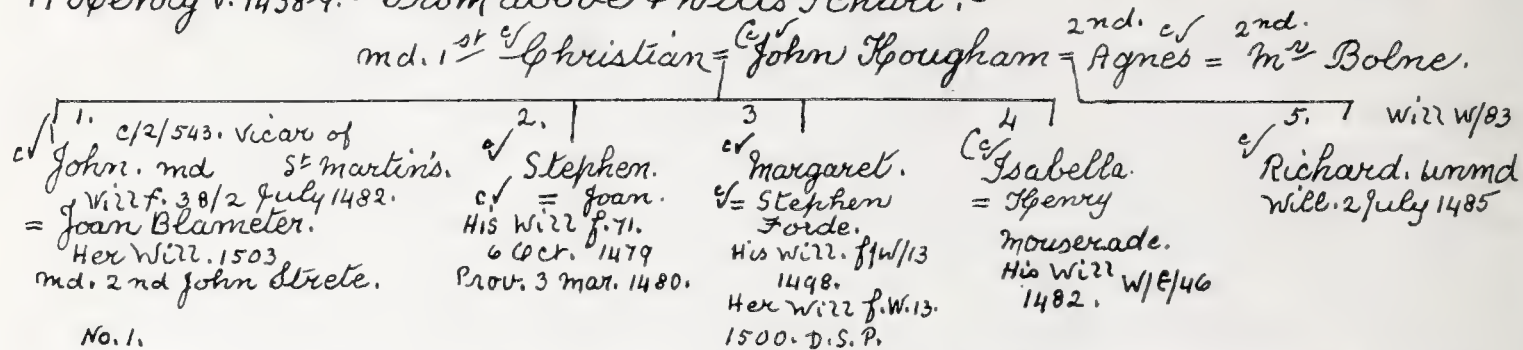 md. 1st Christian = John Hougham = 2nd. Agnes = 2nd. Mr Bolne.
1. c/2/543. Vicar of
John. md St Martin's.
Will f. 38/2 July 1482.
= Joan Blameter.
Her Will. 1503
md. 2nd John Strete.
No. 1.
2.
Stephen.
= Joan.
His Will f. 71.
6 Oct. 1479
Prov. 3 Mar. 1480.
3
Margaret.
= Stephen
Forde.
His Will. ffW/13
1498.
Her Will f. W. 13.
1500. D.S.P.
4
Isabella.
= Henry
Mouserade.
His Will W/E/46
1482.
5. Will W/83
Richard. unmd
Will. 2 July 1485